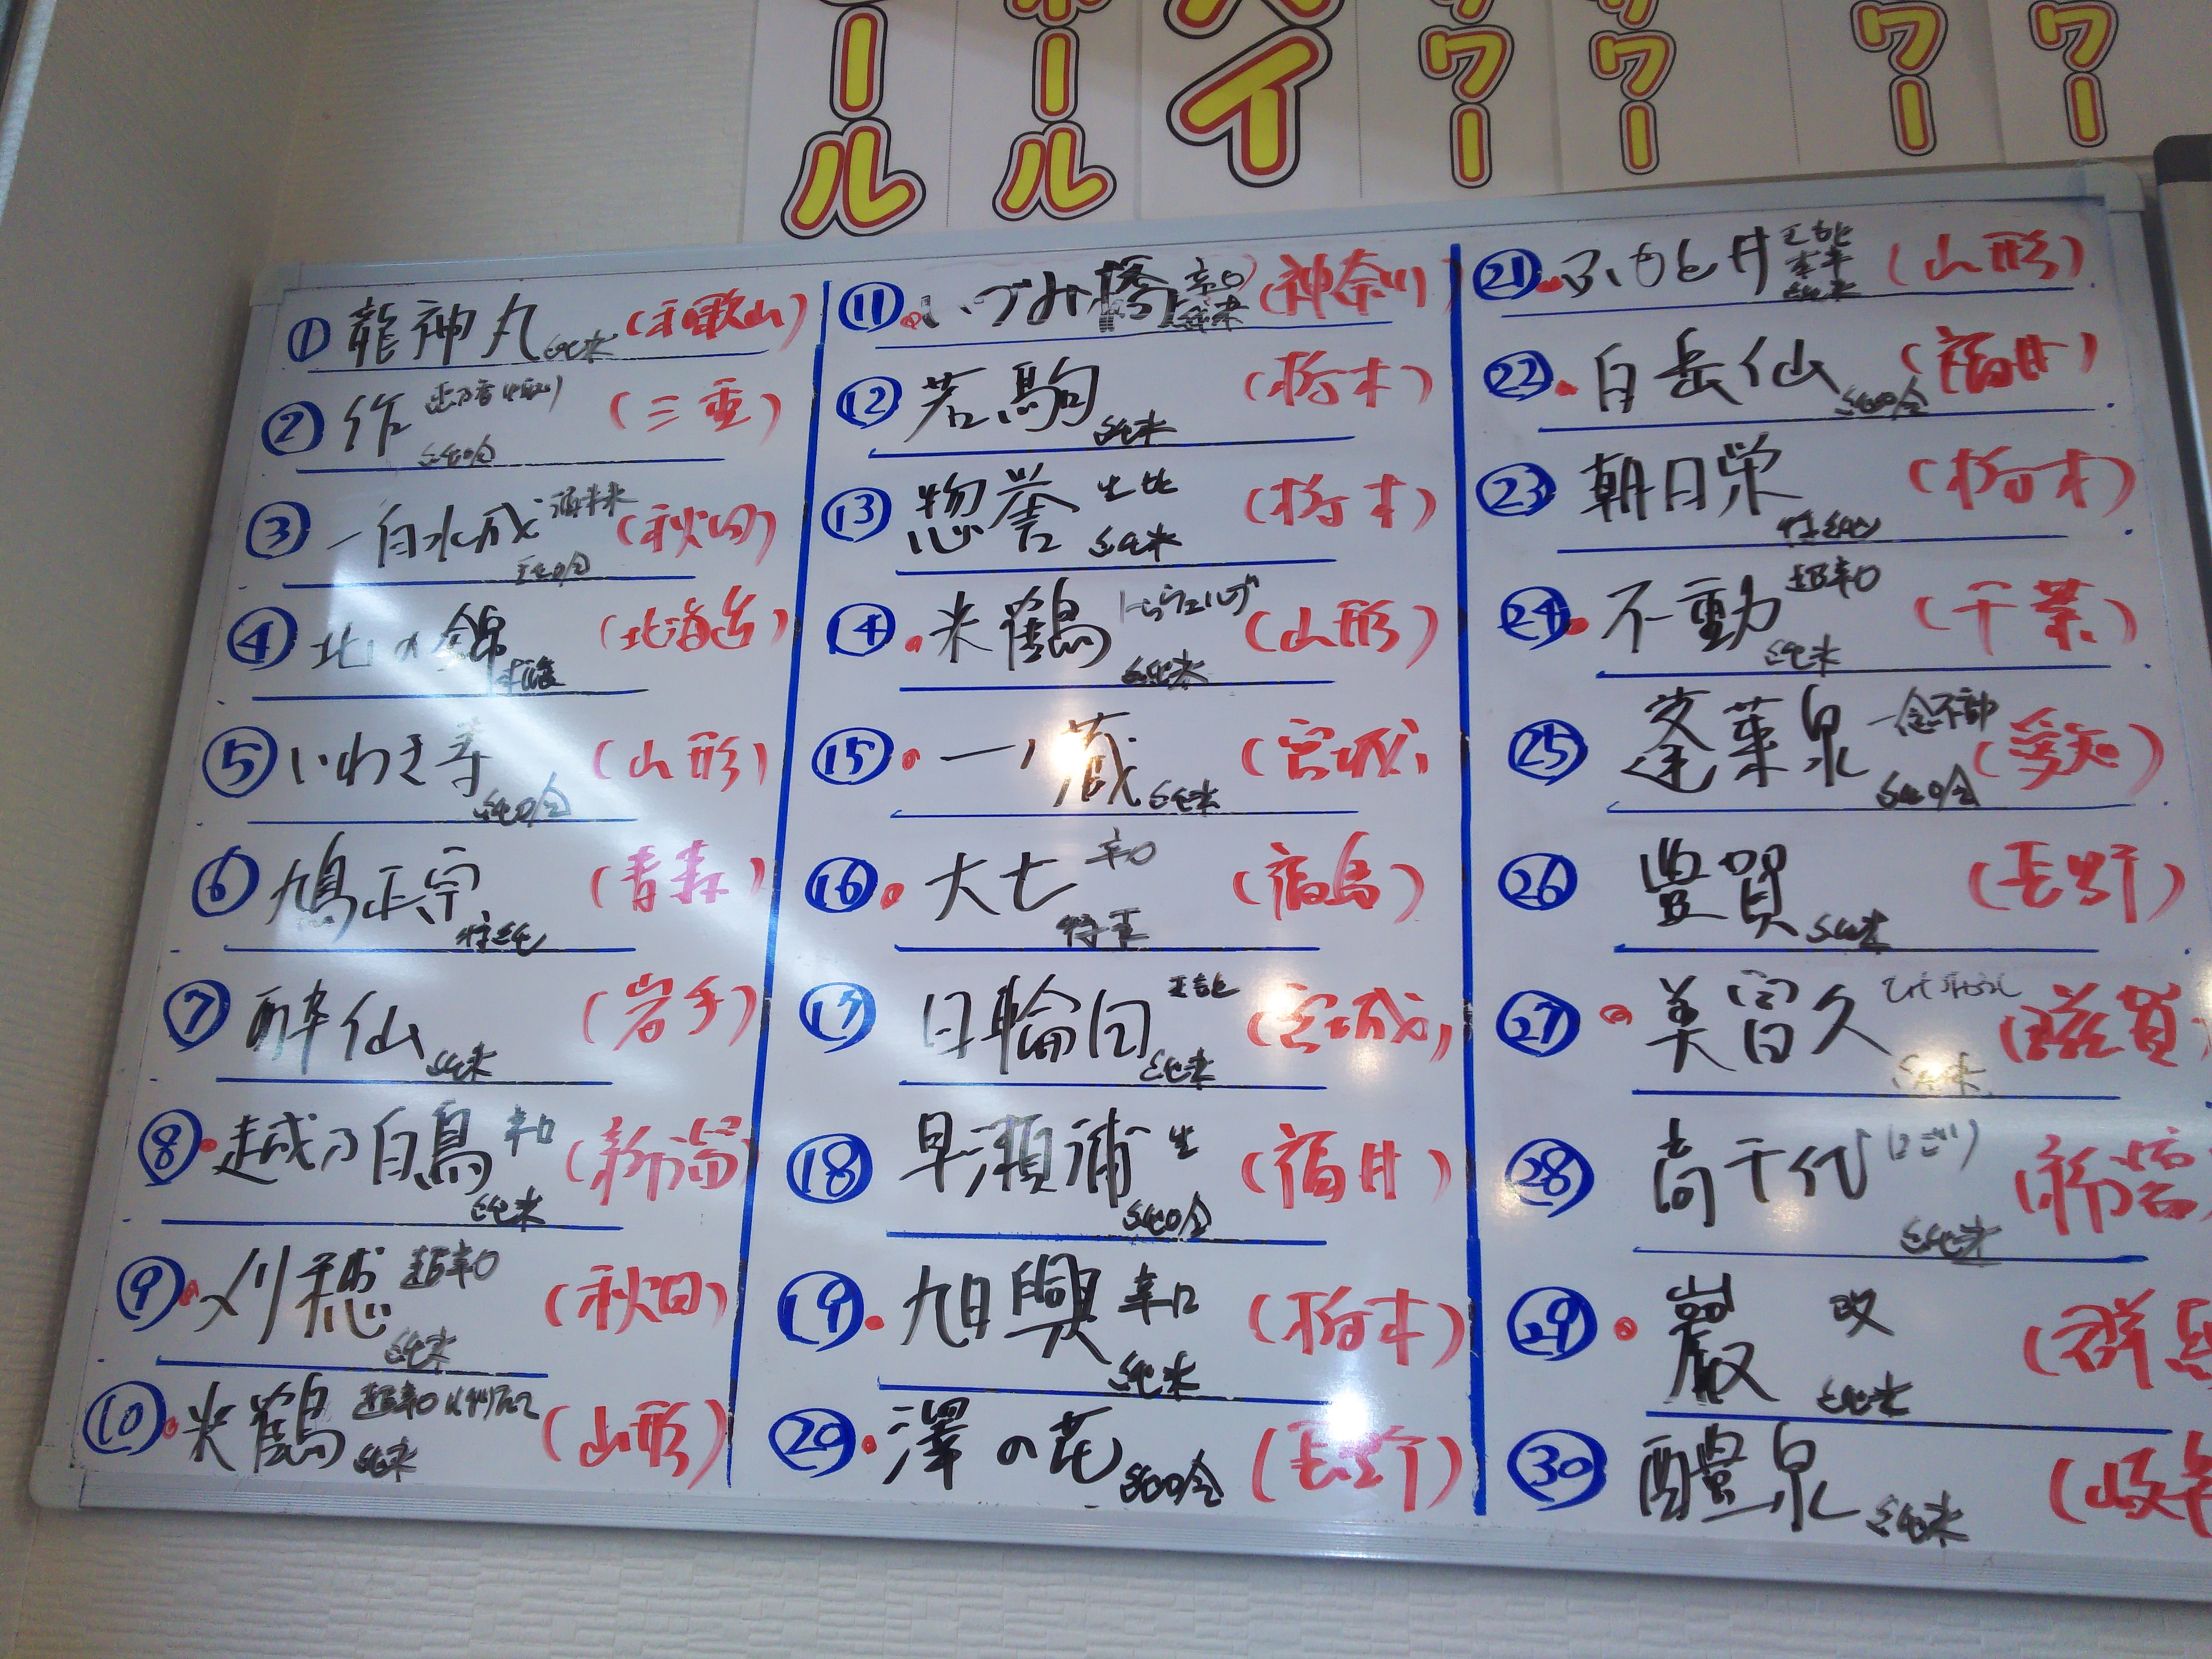 ール
ール
イ
ワー
ワー
ワー
ワー
① 龍神丸 純米 (和歌山)
② 作 恵乃智 純吟 (三重)
③ 一白水成 純吟 (秋田)
④ 北の錦 (北海道)
⑤ いわき寿 純吟 (山形)
⑥ 鳩正宗 特純 (青森)
⑦ 酔仙 純米 (岩手)
⑧ 越乃白鳥 辛口 純米 (新潟)
⑨ 刈穂 超辛口 純米 (秋田)
⑩ 米鶴 超辛口 純米 (山形)
⑪ いづみ橋 辛口 純米 (神奈川)
⑫ 若駒 純米 (栃木)
⑬ 惣誉 生酛 純米 (栃木)
⑭ 米鶴 純米 (山形)
⑮ 一ノ蔵 純米 (宮城)
⑯ 大七 辛口 (福島)
⑰ 日輪田 純米 (宮城)
⑱ 早瀬浦 生 純吟 (福井)
⑲ 旭興 辛口 純米 (栃木)
⑳ 澤の花 純吟 (長野)
㉑ ふもと井 純米 (山形)
㉒ 白岳仙 純吟 (福井)
㉓ 朝日栄 特純 (栃木)
㉔ 不動 超辛口 純米 (千葉)
㉕ 蓬莱泉 一念不動 純吟 (愛知)
㉖ 豊賀 純米 (長野)
㉗ 美冨久 純米 (滋賀)
㉘ 高千代 (にごり) 純米 (新潟
㉙ 巖 改 純米 (群馬
㉚ 醴泉 純米 (岐阜